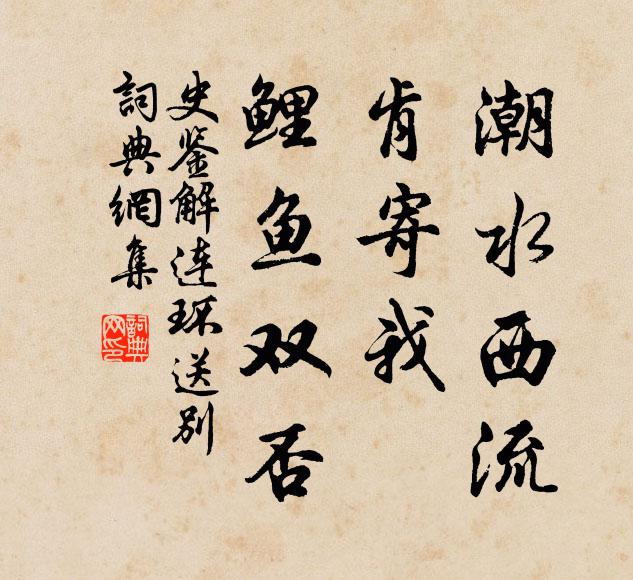 潮水西流
肯寄我
鲤鱼双否
史鉴解连环送别
詞典網集
詞典
网印